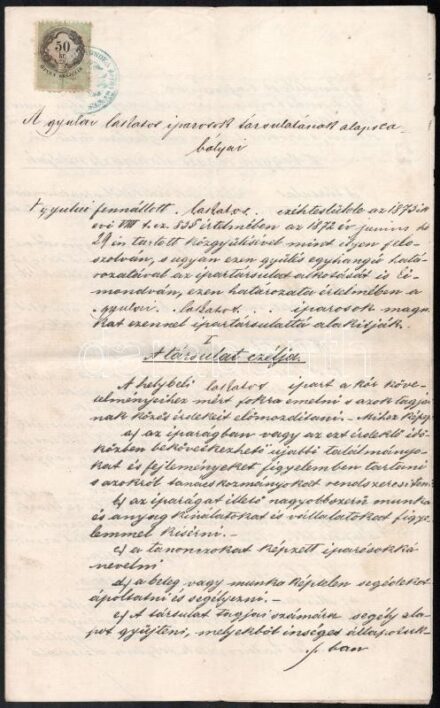 50
kr.
A gyulai lakatos iparosok társulatának alapsza-
bályai
A gyulai fennállott lakatos czéhtestület az 1872ik
évi VIII t. cz. 83§ értelmében az 1872 év junius hó
29én tartott közgyülésével mint ilyen felo-
szolván, s ugyan ezen gyülés egyhangú hatá-
rozatával az ipartársulat alkotását is
mondván, ezen határozata értelmében a
gyulai lakatos iparosok magu-
kat ezennel ipartársulattá alakitják.
I
A társulat czélja.
A helybeli lakatos ipart a kor köve-
telményeihez mért fokra emelni s azok tagja-
inak közös érdekeit előmozditani. Mihez képest
a) az iparágban vagy az ezt érdeklő idő-
közben bekövetkezhető ujabbi találmányo-
kat és fejleményeket figyelemben tartani
s azokról tanácskozmányokat rendszeresiteni
b) az iparágat illető nagyobbszerü munka
és anyag kinálatokat is vállalatokat figye-
lemmel kisérni. -
c) a tanonczokat képzett iparosokká
nevelni
d) a beteg vagy munka képtelen segédeket
ápoltatni és segélyezni. -
e) A társulat tagjai számára segély ala-
pot gyüjteni, melyekből inséges állapotuk-
ban